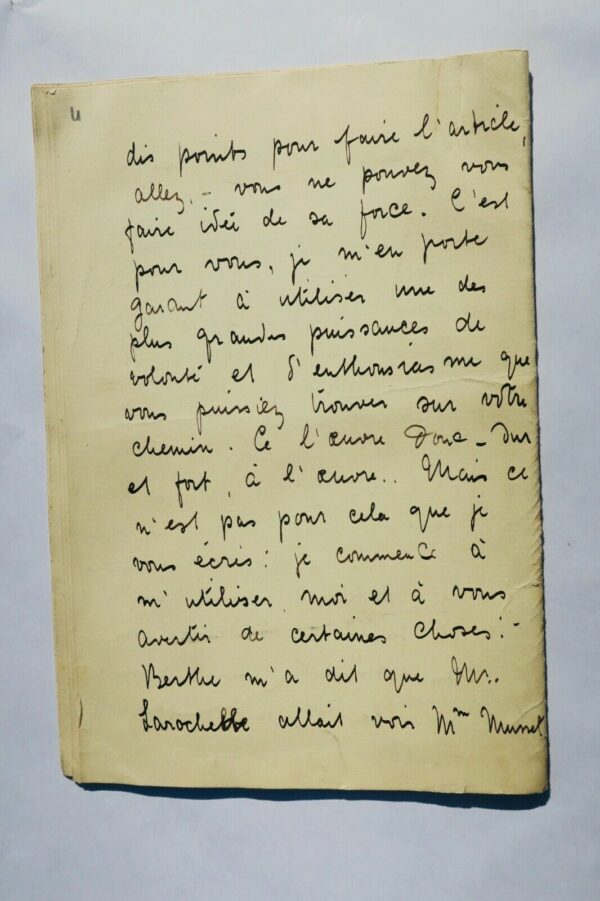 4
dis points pour faire l'article,
allez, - vous ne pouvez vous
faire idée de sa force. C'est
pour vous, je m'en porte
garant à utiliser une des
plus grandes puissances de
volonté et d'enthousiasme que
vous puissiez trouver sur votre
chemin. Ce l'œuvre donc - Dur
et fort, à l'œuvre.. Mais ce
n'est pas pour cela que je
vous écris : je commence à
m'utiliser, moi et à vous
avertir de certaines choses : -
Berthe m'a dit que Mr.
Larochelle allait voir Mme Musset